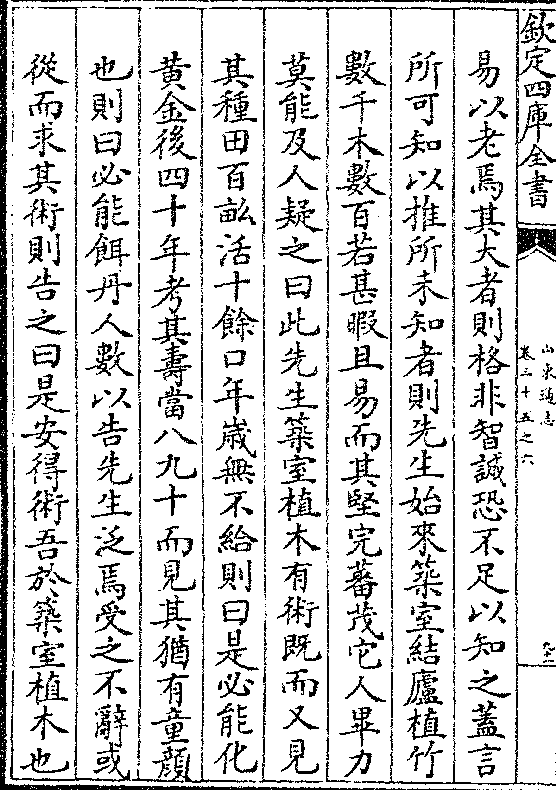 欽定四庫全書
山東通志
卷三十五之六
易以老焉其大者則格非智誠恐不足以知之蓋言
所可知以推所未知者則先生始來築室結廬植竹
數千木數百若甚暇且易而其堅完蕃茂它人畢力
莫能及人疑之曰此先生築室植木有術既而又見
其種田百畝活十餘口年嵗無不給則曰是必能化
黄金後四十年考其壽當八九十而見其猶有童顔
也則曰必能餌丹人數以告先生泛焉受之不辭或
從而求其術則告之曰是安得術吾於築室植木也